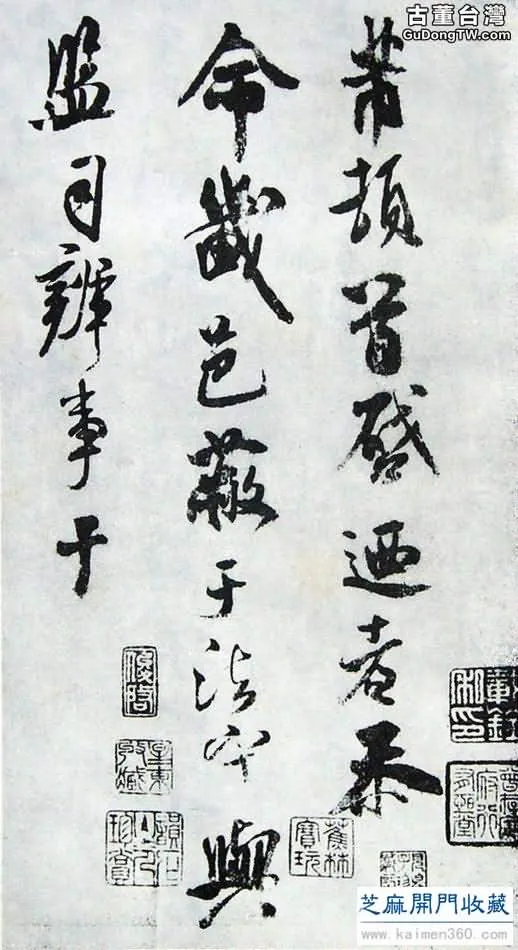 古董台灣
GuDongTW.com
芾頓首啓迺者忝
命畿邑蔽于法與
監司辦事十
蕉林寶玩
芝麻開門收藏
www.kaimen360.com